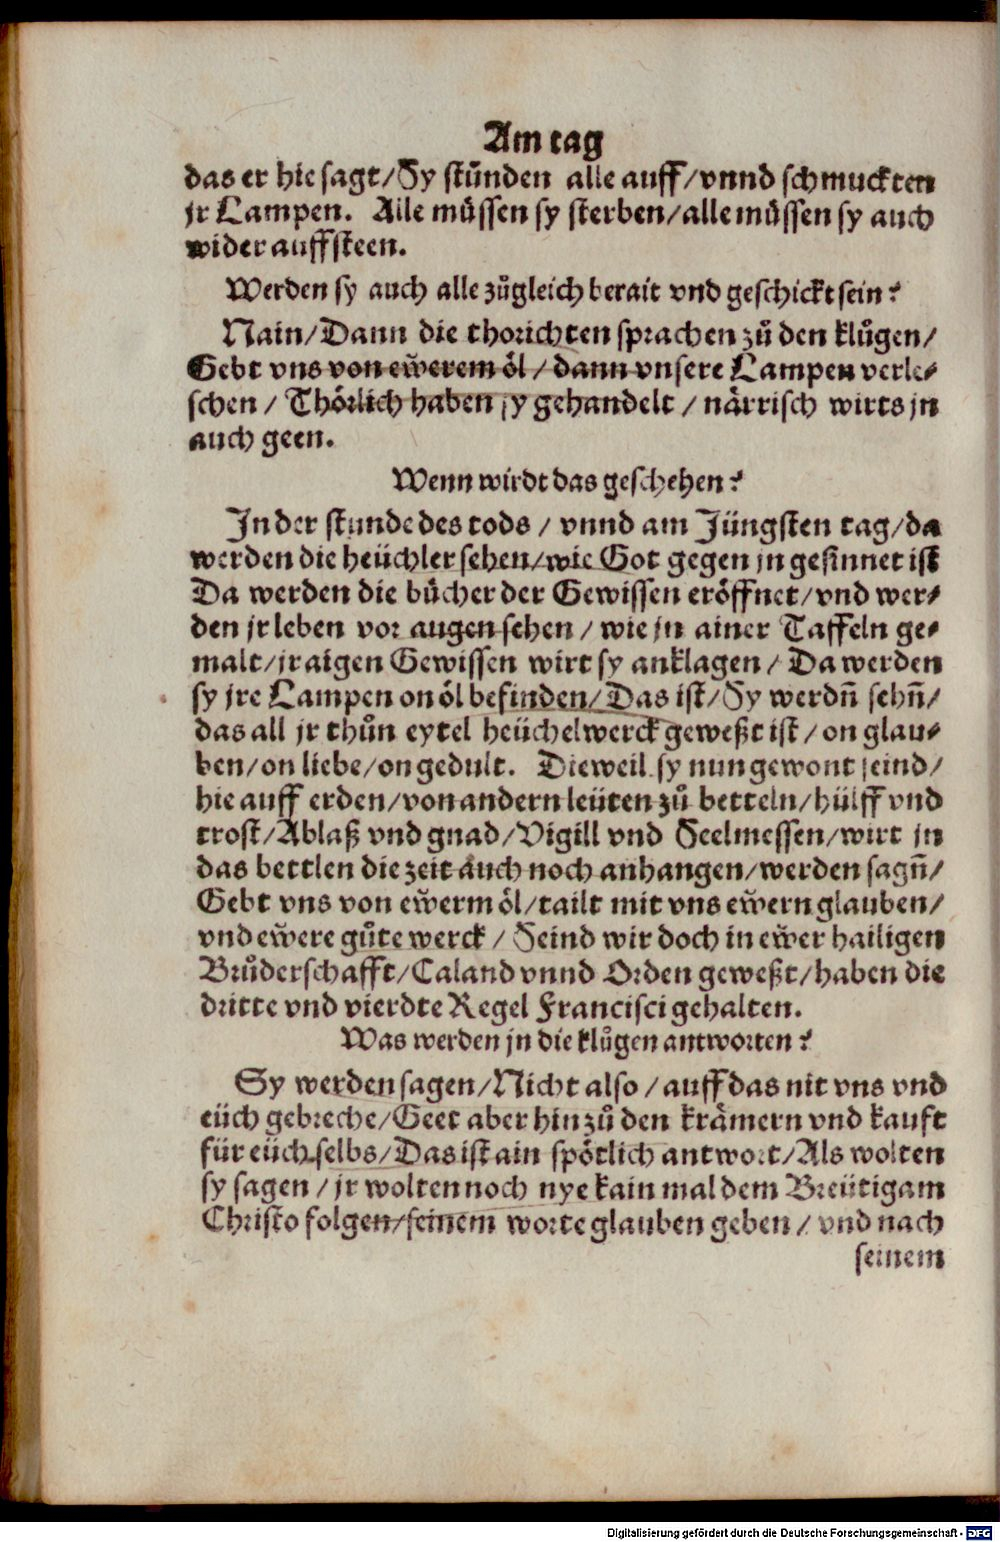 Am tag
das er hie sagt/Sy stůnden alle auff/vnnd schmuckten
jr Lampen. Alle můssen sy sterben/alle můssen sy auch
wider auffsteen.
Werden sy auch alle zůgleich berait vnd geschickt sein?
Nain/Dann die thorichten sprachen zů den klůgen/
Gebt vns von ew̌erem öl/dann vnsere Lampen verle⸗
schen/Thörlich haben sy gehandelt/närrisch wirts jn
auch geen.
Wenn wirdt das geschehen?
In der stunde des tods/vnnd am Jüngsten tag/da
werden die heüchler sehen/wie Got gegen jn gesinnet ist
Da werden die bücher der Gewissen eröffnet/vnd wer⸗
den jr leben vor augen sehen/wie jn ainer Taffeln ge⸗
malt/jr aigen Gewissen wirt sy anklagen/Da werden
sy jre Lampen on öl befinden/Das ist/Sy werdn̄ sehn̄/
das all jr thůn eytel heüchelwerck geweßt ist/on glau⸗
ben/on liebe/on gedult. Dieweil sy nun gewont seind/
hie auff erden/von andern leüten zů betteln/hülff vnd
trost/Ablaß vnd gnad/Vigill vnd Seelmessen/wirt jn
das bettlen die zeit auch noch anhangen/werden sagn̄/
Gebt vns von ew̌erm öl/tailt mit vns ew̌ern glauben/
vnd ew̌ere gůte werck/Seind wir doch in ew̌er hailigen
Brůderschafft/Caland vnnd Orden geweßt/haben die
dritte vnd vierdte Regel Francisci gehalten.
Was werden jn die klůgen antworten?
Sy werden sagen/Nicht also/auff das nit vns vnd
eüch gebreche/Geet aber hin zů den krämern vnd kauft
für eüch selbs/Das ist ain spötlich antwort/Als wolten
sy sagen/jr wolten noch nye kain mal dem Breütigam
Christo folgen/seinem worte glauben geben/vnd nach
seinem
Digitalisierung gefördert durch die Deutsche Forschungsgemeinschaft - DFG